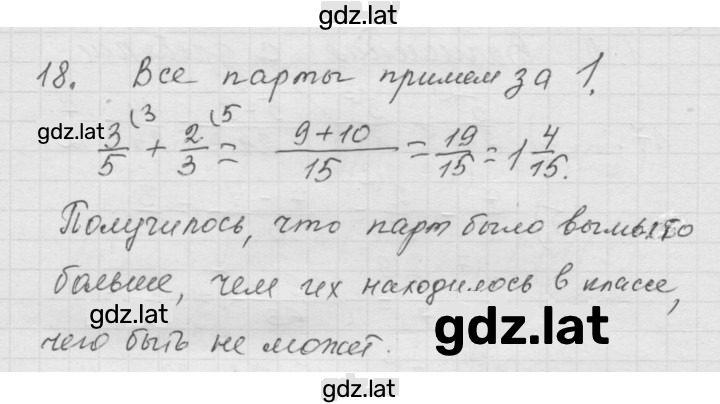 gdz.lat
18. Все парты примем за 1.
gdz.lat
3/5 (3 + 2/3 (5 = 9+10/15 = 19/15 = 1 4/15.
Получилось, что парт было вымыто
больше, чем их находилось в классе,
gdz.lat
gdz.lat
чего быть не может.
gdz.lat